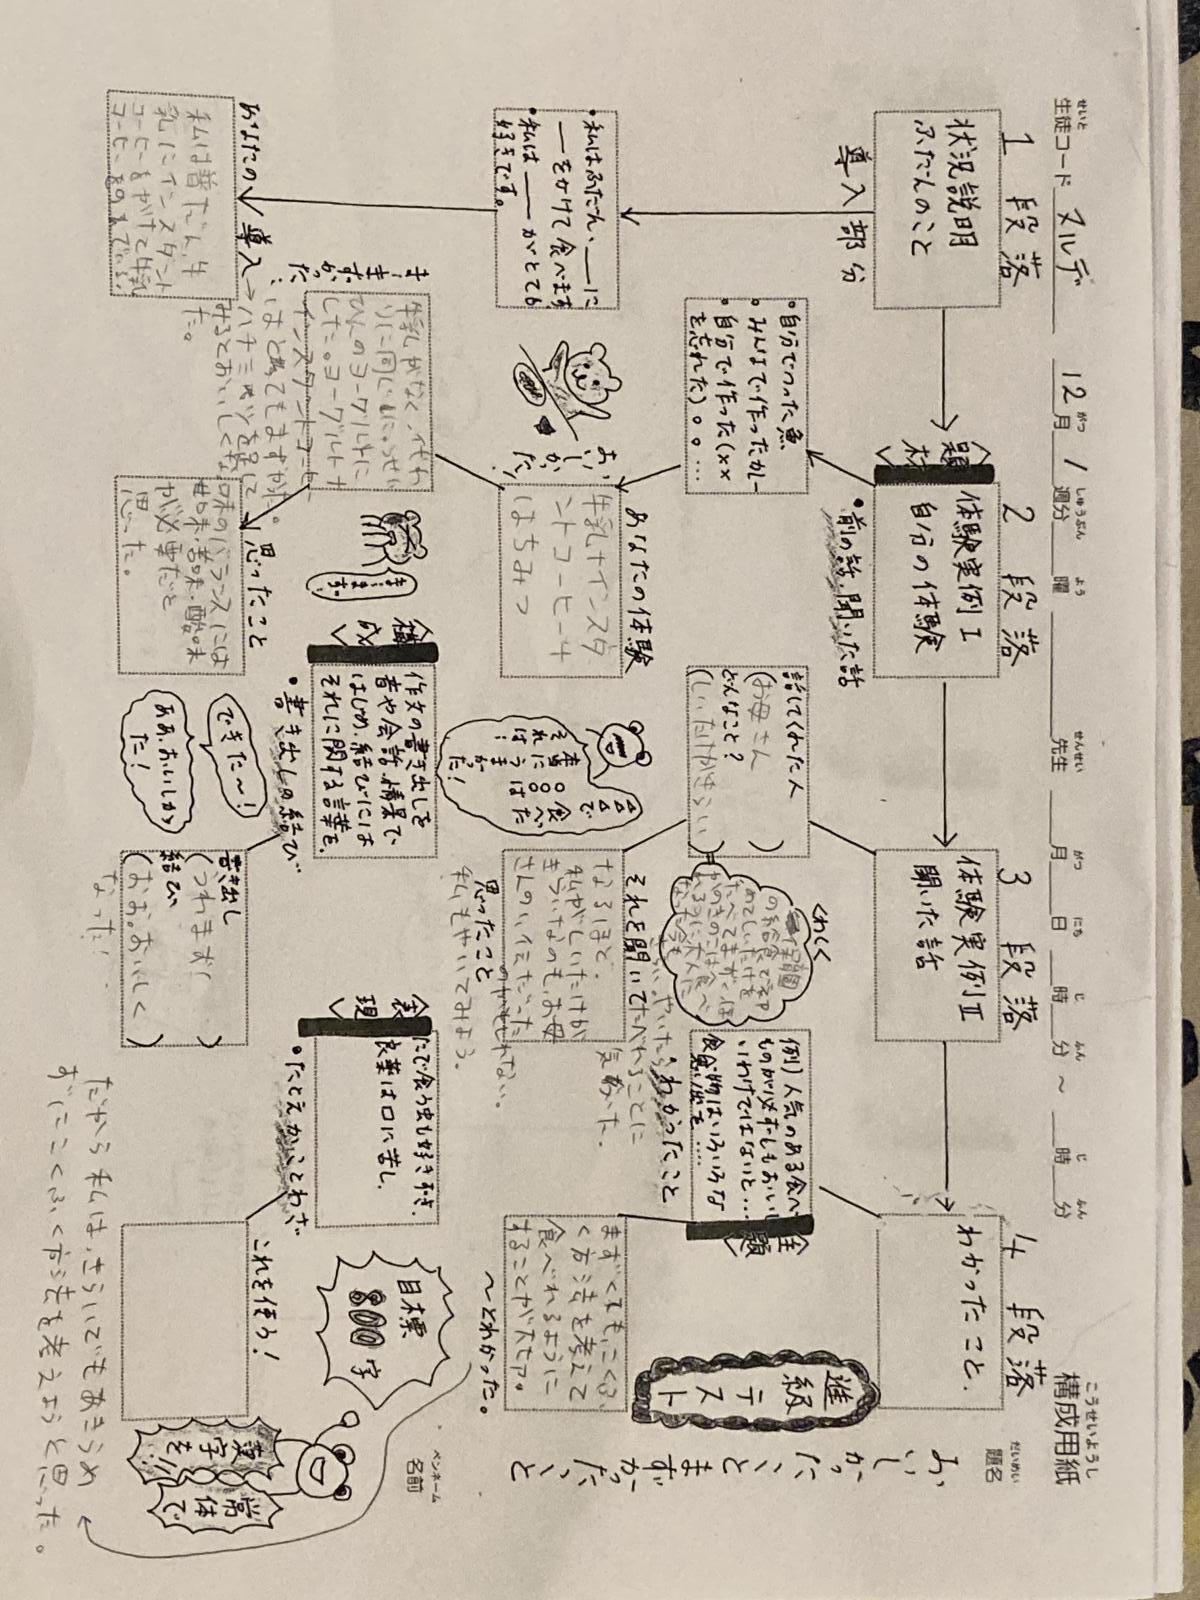 構成用紙
こうせいようし
生徒コード ヌルデ
せいと
12月 1週分 曜 先生 月 日 時 分 ～ 時 分
がつ しゅうぶん よう せんせい がつ にち じ ふん じ ふん
題名
だいめい
おいしかったこと
まずかったこと
ペンネーム
名前
1段落
状況説明
ふだんのこと
導入部分
・私はふだん、＿＿に
＿＿をかけて食べます
・私は＿＿がとても
好きです。
あなたの導入
私は普だん、牛
乳にインスタント
コーヒーをかけた牛乳
コーヒーをのんでいる。
2段落
〈題材〉
体験実例Ⅰ
自分の体験
・前の話・聞いた話
・自分でつった魚
・みんなで作ったカレー
・自分で作った(××
を忘れた)。。。…
おいしかった!
あなたの体験
牛乳+インスタ
ントコーヒー+
はちみつ
まずかった…
牛乳がなく、代わ
りに同じにゅうせい
ひんのヨーグルトに
した。ヨーグルト+
インスタントコーヒー
はとってもまずかった。
ハチミツを足して
みるとおいしくなっ
た。
思ったこと
味のバランスには
甘味・苦味・酸味
が必要だと
思った。
3段落
体験実例Ⅱ
聞いた話
話してくれた人
(お母さん)
どんなこと?
(しいたけがきらい)
くわしく
保育園
の給食で初
めてしいたけを
たべてまずくほ
かのきのこは食べ
れるのに大人に
なった今も
きらい。
△△で
○○食べた
本当
それにうまかった!
それを聞いて
なるほど、
私がしいたけが
きらいなのも、お母
さんのいでんだった
のかもせれない。
思ったこと
私もやいてみよう。
やいたら
たべれることに
気づいた。
4段落
わかったこと、
例)人気のある食べ
ものが必ずしもおいし
いわけではないと…
食べ物はいろいろな
思い出を……
わかったこと
〈主題〉
まずくてもこくふ
く方法を考えて
食べれるように
することが大切。
～とわかった。
進級テスト
〈構成〉
作文の書き出しを
音や会話・情景で
はじめ、結びには
それに関する言葉を。
・書き出しの結び
できた～!
ああ、おいしかった!
書き出し
(うわまずく)
結び
(おお。おいしく
なった!)
〈表現〉
たで食う虫も好き好き。
良薬は口に苦し。
・たとえかことわざ
これを使う!
目標
800字
漢字を!!
常体で
だから私は、きらいでもあきらめ
ずにこくふく方法を考えようと思った。